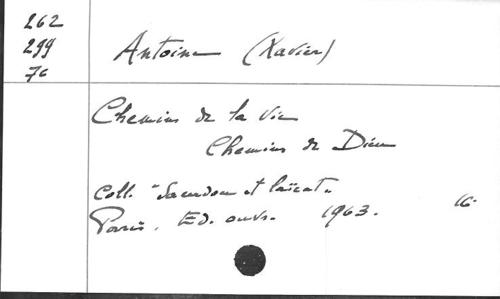 262
299
76
Antoine (Xavier)
Chemins de la vie
Chemins de Dieu
Coll. "Sacerdoce et laïcat"
Paris. Ed. ouvr. 1963. 16